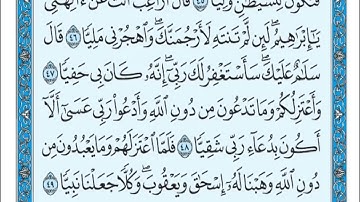 فَتَكُونَ لِلشَّيْطَٰنِ وَلِيًّا ٤٥ قَالَ أَرَاغِبٌ أَنتَ عَنْ ءَالِهَتِى
يَٰٓإِبْرَٰهِيمُ ۖ لَئِن لَّمْ تَنتَهِ لَأَرْجُمَنَّكَ ۖ وَٱهْجُرْنِى مَلِيًّا ٤٦ قَالَ
سَلَٰمٌ عَلَيْكَ ۖ سَأَسْتَغْفِرُ لَكَ رَبِّىٓ ۖ إِنَّهُۥ كَانَ بِى حَفِيًّا ٤٧
وَأَعْتَزِلُكُمْ وَمَا تَدْعُونَ مِن دُونِ ٱللَّهِ وَأَدْعُوا۟ رَبِّى عَسَىٰٓ أَلَّآ
أَكُونَ بِدُعَآءِ رَبِّى شَقِيًّا ٤٨ فَلَمَّا ٱعْتَزَلَهُمْ وَمَا يَعْبُدُونَ مِن
دُونِ ٱللَّهِ وَهَبْنَا لَهُۥٓ إِسْحَٰقَ وَيَعْقُوبَ ۖ وَكُلًّا جَعَلْنَا نَبِيًّا ٤٩